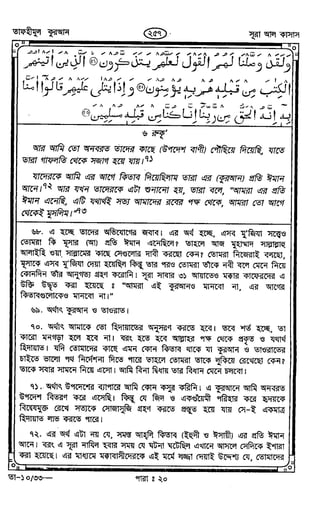 তাফহীমুল কুরআন
২৫৭
সূরা আল কাসাস
وَلَقَدْ وَصَّلْنَا لَهُمُ الْقَوْلَ لَعَلَّهُمْ يَتَذَكَّرُونَ ۝ اَلَّذِينَ اٰتَيْنٰهُمُ
الْكِتٰبَ مِنْ قَبْلِهٖ هُمْ بِهٖ يُؤْمِنُونَ ۝ وَاِذَا يُتْلٰى عَلَيْهِمْ قَالُوْٓا اٰمَنَّا
بِهٖٓ اِنَّهُ الْحَقُّ مِنْ رَّبِّنَآ اِنَّا كُنَّا مِنْ قَبْلِهٖ مُسْلِمِيْنَ ۝
৬ রুকূ'
আর আমি তো অনবরত তাদের কাছে (উপদেশ বাণী) পৌঁছিয়ে দিয়েছি, যাতে
তারা গাফলতি থেকে সজাগ হয়ে যায়।৭১
যাদেরকে আমি এর আগে কিতাব দিয়েছিলাম তারা এর (কুরআন) প্রতি ঈমান
আনে।৭২ আর যখন তাদেরকে এটা শুনানো হয়, তারা বলে, "আমরা এর প্রতি
ঈমান এনেছি, এটি যথার্থই সত্য আমাদের রবের পক্ষ থেকে, আমরা তো আগে
থেকেই মুসলিম।"৭৩
৬৮. এ হচ্ছে তাদের অভিযোগের জবাব। এর অর্থ হচ্ছে, এসব মু'জিযা সত্ত্বেও
তোমরা কি মূসার (আ) প্রতি ঈমান এনেছিলে? তাহলে আজ মুহাম্মাদ সাল্লাল্লাহু
আলাইহি ওয়া সাল্লামের কাছে সেগুলোর দাবী করছো কেন? তোমরা নিজেরাই বলছো,
মূসাকে এসব মু'জিযা দেয়া হয়েছিল কিন্তু তার পরও তোমরা তাঁকে নবী বলে মেনে নিয়ে
কোনদিন তাঁর আনুগত্য গ্রহণ করোনি। সূরা সাবার ৩১ আয়াতেও মক্কার কাফেরদের এ
উক্তি উদ্ধৃত করা হয়েছে ঃ "আমরা এই কুরআনও মানবো না, এর আগের
কিতাবগুলোকেও মানবো না।"
৬৯. অর্থাৎ কুরআন ও তাওরাত।
৭০. অর্থাৎ আমাকে তো হিদায়াতের অনুসরণ করতে হবে। তবে শর্ত হচ্ছে, তা
কারো মনগড়া হলে হবে না। বরং হতে হবে আল্লাহর পক্ষ থেকে প্রকৃত ও যথার্থ
হিদায়াত। যদি তোমাদের কাছে এমন কোন কিতাব থাকে যা কুরআন ও তাওরাতের
চাইতে ভালো পথ নির্দেশনা দিতে পারে তাহলে তোমরা তাকে লুকিয়ে রেখেছো কেন?
তাকে সবার সামনে নিয়ে এসো। আমি বিনা দ্বিধায় তার বিধান মেনে চলবো।
৭১. অর্থাৎ উপদেশের ব্যাপারে আমি কোন কসুর করিনি। এ কুরআনে আমি অনবরত
উপদেশ বিতরণ করে এসেছি। কিন্তু যে জিদ ও একগুঁয়েমী পরিহার করে হৃদয়কে
বিদ্বেষমুক্ত রেখে সত্যকে সোজাসুজি গ্রহণ করতে প্রস্তুত হয়ে যায় সে-ই একমাত্র
হিদায়াত লাভ করতে পারে।
৭২. এর অর্থ এটা নয় যে, সমস্ত আহ্‌লি কিতাব (ইহুদী ও ঈসায়ী) এর প্রতি ঈমান
আনে। বরং এ সূরা নাযিল হবার সময় যে ঘটনা ঘটেছিল এখানে আসলে সেদিকে ইশারা
করা হয়েছে। এর মাধ্যমে মক্কাবাসীদেরকে এই মর্মে লজ্জা দেয়াই উদ্দেশ্য যে, তোমাদের
তা-১০/৩৩—
পারা ঃ ২০